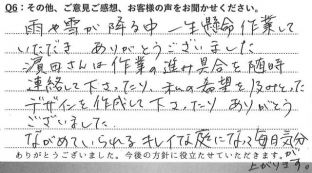 Q6：その他、ご意見ご感想、お客様の声をお聞かせください。
雨や雪が降る中一生懸命作業して
いただき ありがとうございました
濵田さんは作業の進み具合を随時
連絡して下さったり 私の希望を
デザインを作成して下さったり ありがとう
ございました。
ながめていられるキレイな庭になって毎日気分が
ありがとうございました。今後の方針に役立たせていただきます。
上がります。